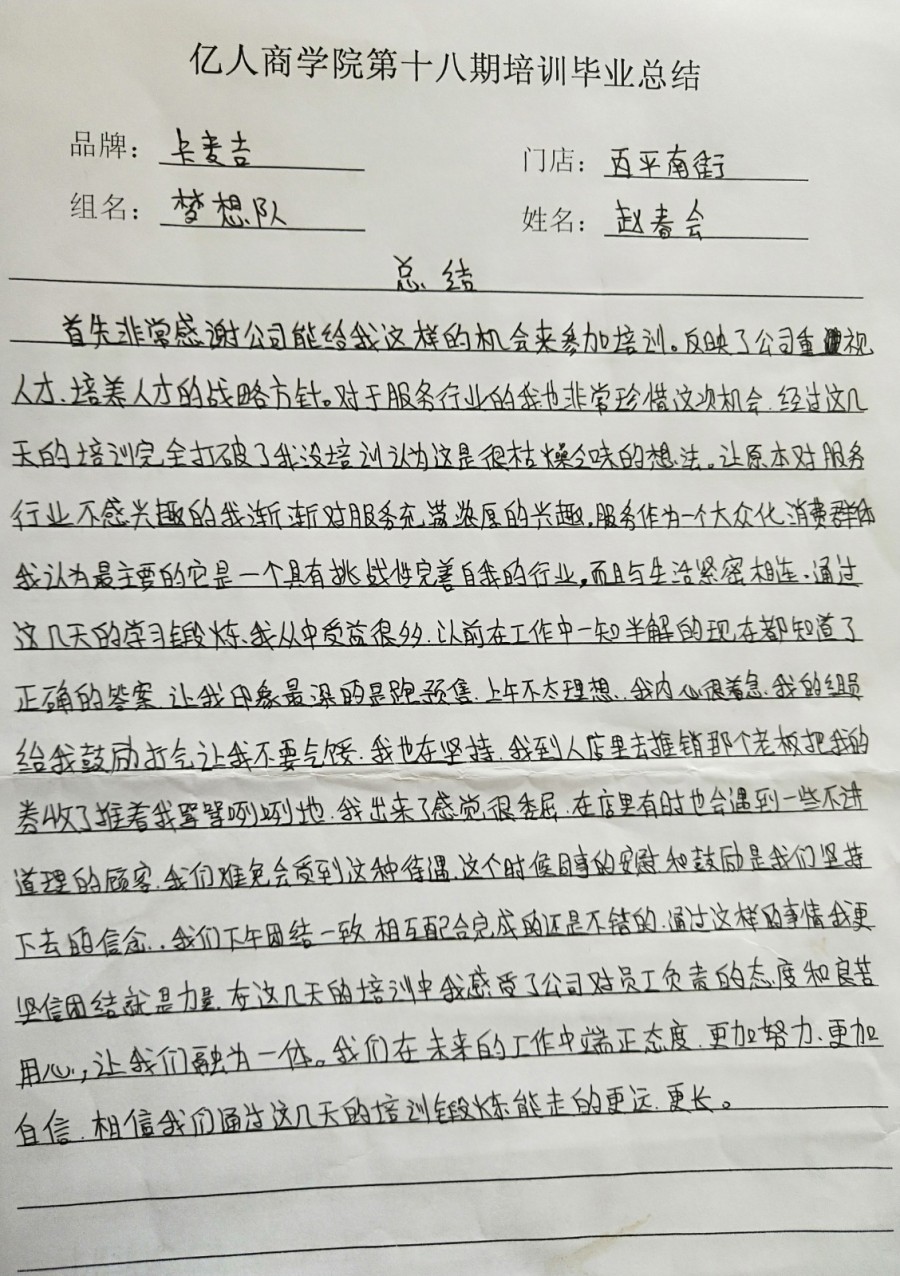 亿人商学院第十八期培训毕业总结
品牌：卡麦吉 门店：西平南街
组名：梦想队 姓名：赵春会
总结
首先非常感谢公司能给我这样的机会来参加培训。反映了公司重视
人才、培养人才的战略方针。对于服务行业的我也非常珍惜这次机会.经过这几
天的培训完全打破了我没培训认为这是很枯燥乏味的想法。让原本对服务
行业不感兴趣的我渐渐对服务充满浓厚的兴趣.服务作为一个大众化消费群体
我认为最主要的它是一个具有挑战性完善自我的行业,而且与生活紧密相连.通过
这几天的学习锻炼.我从中受益很多.以前在工作中一知半解的现在都知道了
正确的答案.让我印象最深的是跑预售.上午不太理想.我内心很着急.我的组员
给我鼓励打气让我不要气馁.我也在坚持.我到人店里去推销那个老板把我的
券收了推着我骂骂咧咧地.我出来了感觉很委屈.在店里有时也会遇到一些不讲
道理的顾客.我们难免会受到这种待遇.这个时候同事的安慰和鼓励是我们坚持
下去的信念..我们下午团结一致.相互配合完成的还是不错的.通过这样的事情我更
坚信团结就是力量.在这几天的培训中我感受了公司对员工负责的态度和良苦
用心,让我们融为一体。我们在未来的工作中端正态度.更加努力.更加
自信.相信我们通过这几天的培训锻炼能走的更远.更长。